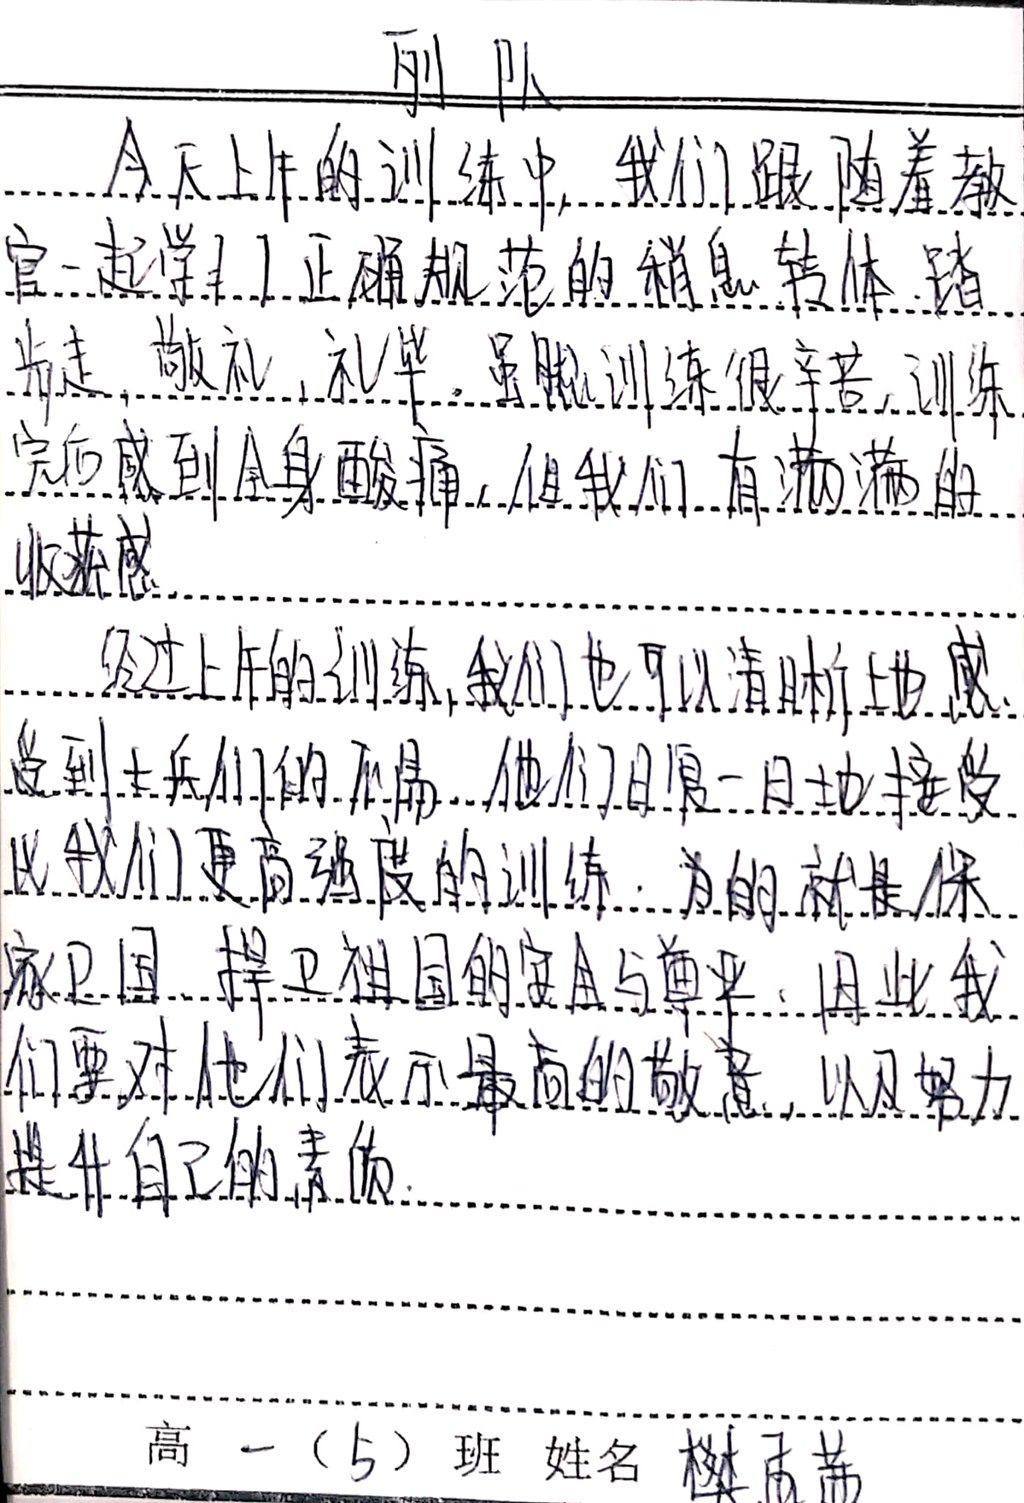 列队
今天上午的训练中,我们跟随着教
官一起学习了正确规范的稍息、转体、踏
步走、敬礼、礼毕。虽然训练很辛苦,训练
完后感到全身酸痛,但我们有满满的
收获感。
经过上午的训练,我们也可以清晰地感
受到士兵们的不易。他们日复一日地接受
比我们更高强度的训练,为的就是保
家卫国、捍卫祖国的安全与尊严。因此我
们要对他们表示最高的敬意,以及努力
提升自己的素质。
高一(5)班 姓名 樊